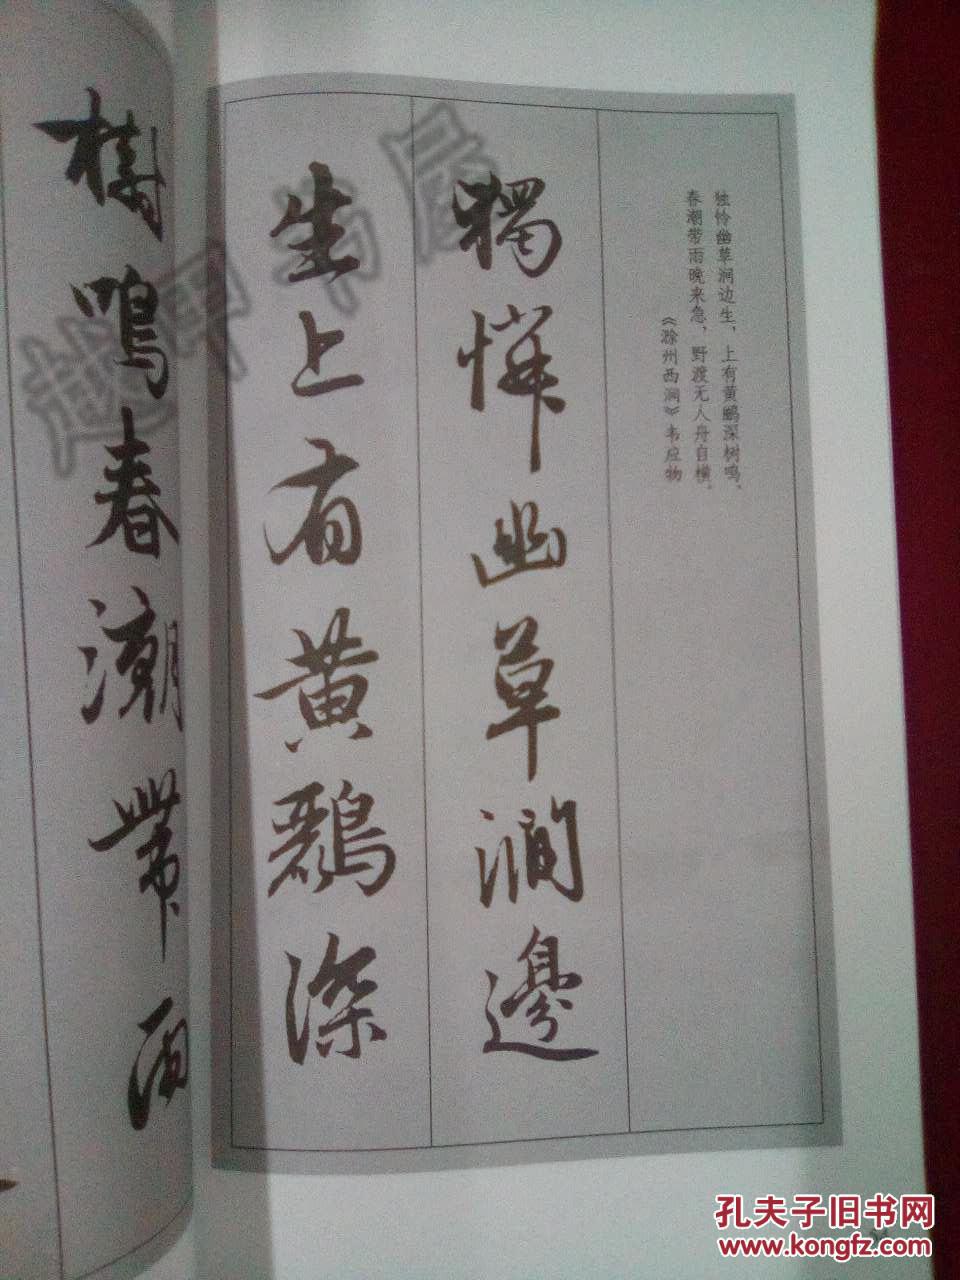 独怜幽草涧边生，上有黄鹂深树鸣，
春潮带雨晚来急，野渡无人舟自横。
《滁州西涧》韦应物
獨憐幽草澗邊
生上有黃鸝深
樹鳴春潮帶雨
孔夫子旧书网
www.kongfz.com